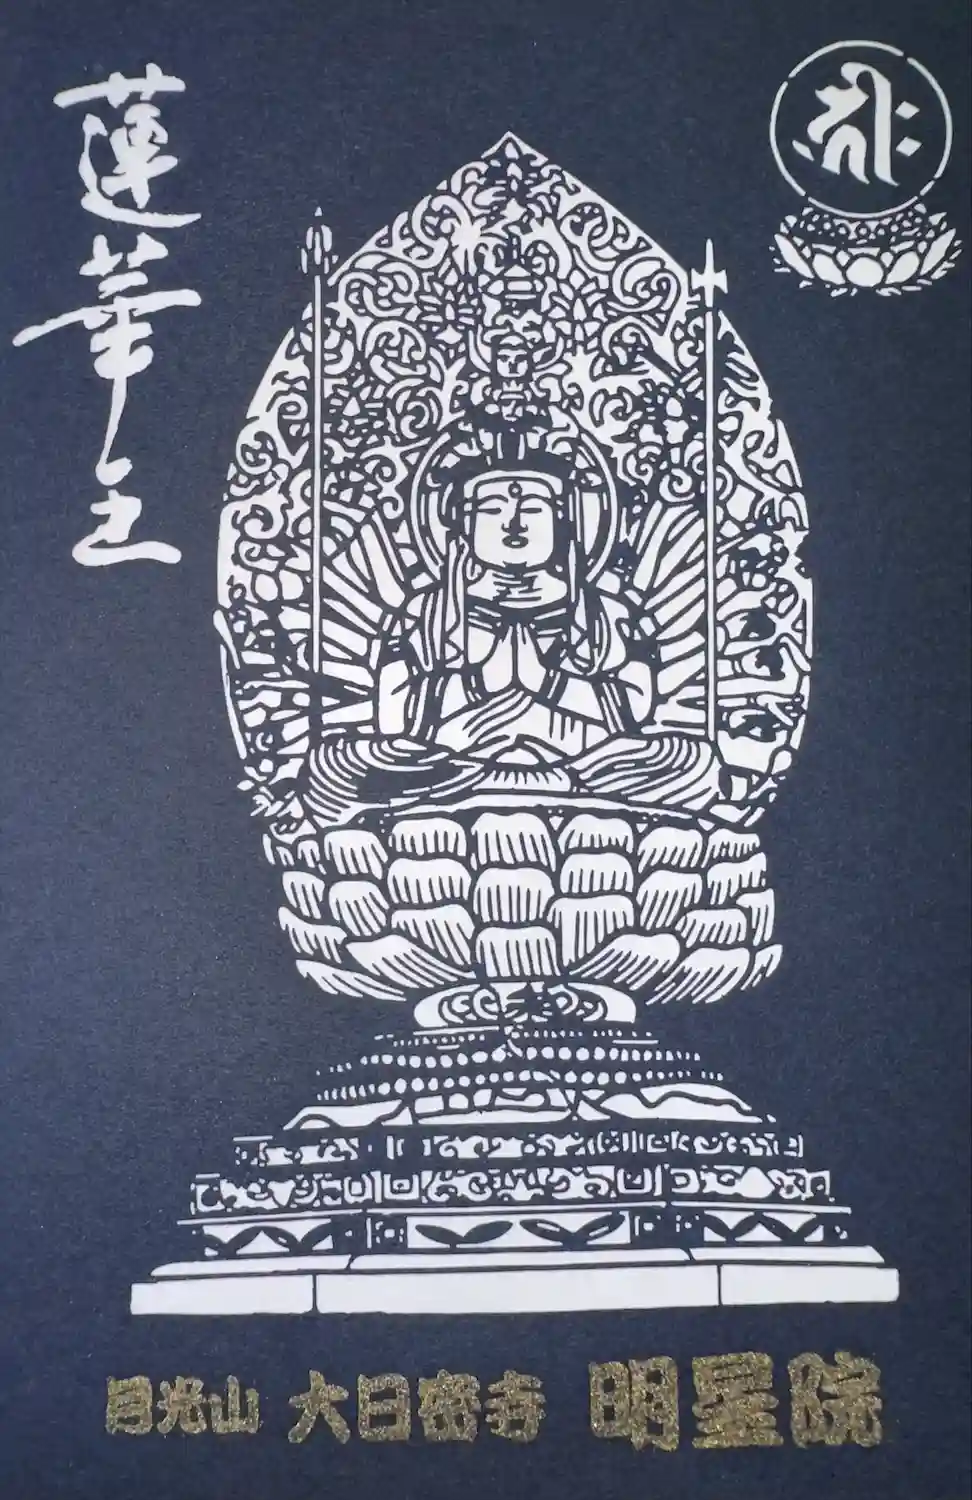 蓮華王
𑖎𑖿𑖨𑖱𑖾
日光山 大日密寺 明星院